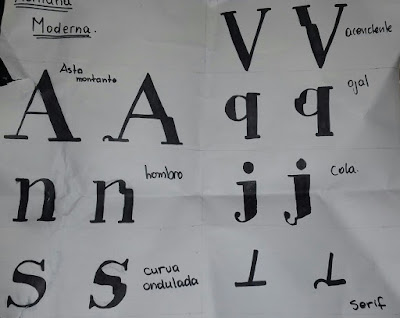 Moderna.
Asta
montante
A A
n n
hombro
S S
curva
ondulada
V V
acendente
q q
ojal
j j
cola.
serif